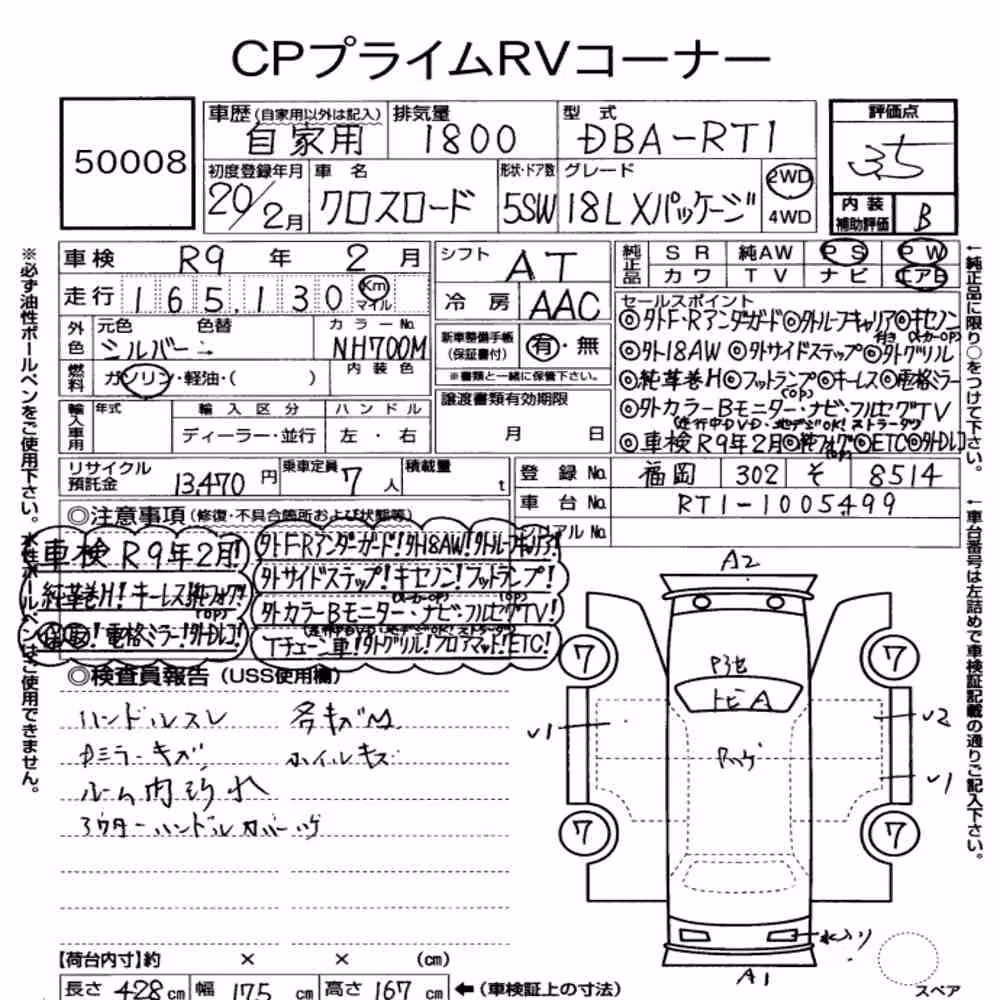 CPプライムRVコーナー
50008
車歴(自家用以外は記入) 自家用
排気量 1800
型式 DBA-RT1
評価点 3.5
初度登録年月 20/2月
車名 クロスロード
形状・ドア数 5SW
グレード 18L Xパッケージ
2WD 4WD
内装補助評価 B
車検 R9年2月
シフト AT
純正品 SR 純AW PS PW
カワ TV ナビ エアB
走行 165,130 Km マイル
冷房 AAC
外色 元色 シルバー 色替
カラーNo. NH700M
新車整備手帳(保証書付) 有・無
※書類と一緒に保管下さい。
燃料 ガソリン・軽油・( )
内装色
セールスポイント
◎外F・Rアンダガード◎外ルーフキャリア付き◎キセノン(メーカーOP)
◎外18AW ◎外サイドステップ◎外グリル
◎純革巻H◎フットランプ(OP)◎キーレス◎電格ミラー
◎外カラーBモニター・ナビ・フルセグTV
(走行中DVD・地デジOK!ストラーダ)
◎車検R9年2月◎純フォグ(OP)◎ETC◎外Dレコ
輸入車用 年式 輸入区分 ディーラー・並行 ハンドル 左・右
譲渡書類有効期限 月 日
リサイクル預託金 13,470円
乗車定員 7人
積載量 t
登録No. 福岡 302 そ 8514
車台No. RT1-1005499
シリアルNo.
◎注意事項(修復・不具合箇所および状態等)
車検R9年2月!
純革巻H!キーレス!純フォグ!(OP)
電格ミラー!外Dレコ!
外F・Rアンダーガード!外18AW!外ルーフキャリア!
外サイドステップ!キセノン!フットランプ!
(メーカーOP) (OP)
外カラーBモニター・ナビ・フルセグTV!
(走行中DVD・地デジOK!ストラーダ)
Tチェーン車!外グリル!フロアマット!ETC!
◎検査員報告(USS使用欄)
ハンドルスレ 各キズM
Pミラーキズ ホイルキズ
ルーム内汚れ
アウターハンドルカバーハゲ
A2
トビA
7
7
7
7
V1
V2
V1
A1
【荷台内寸】約 × × (cm)
長さ 428cm 幅 175cm 高さ 167cm ←(車検証上の寸法)
スペア
※必ず油性ボールペンをご使用下さい。水性ボールペンはご使用できません。
←純正品に限り○をつけて下さい。
←車台番号は左詰めで車検証記載の通りご記入下さい。